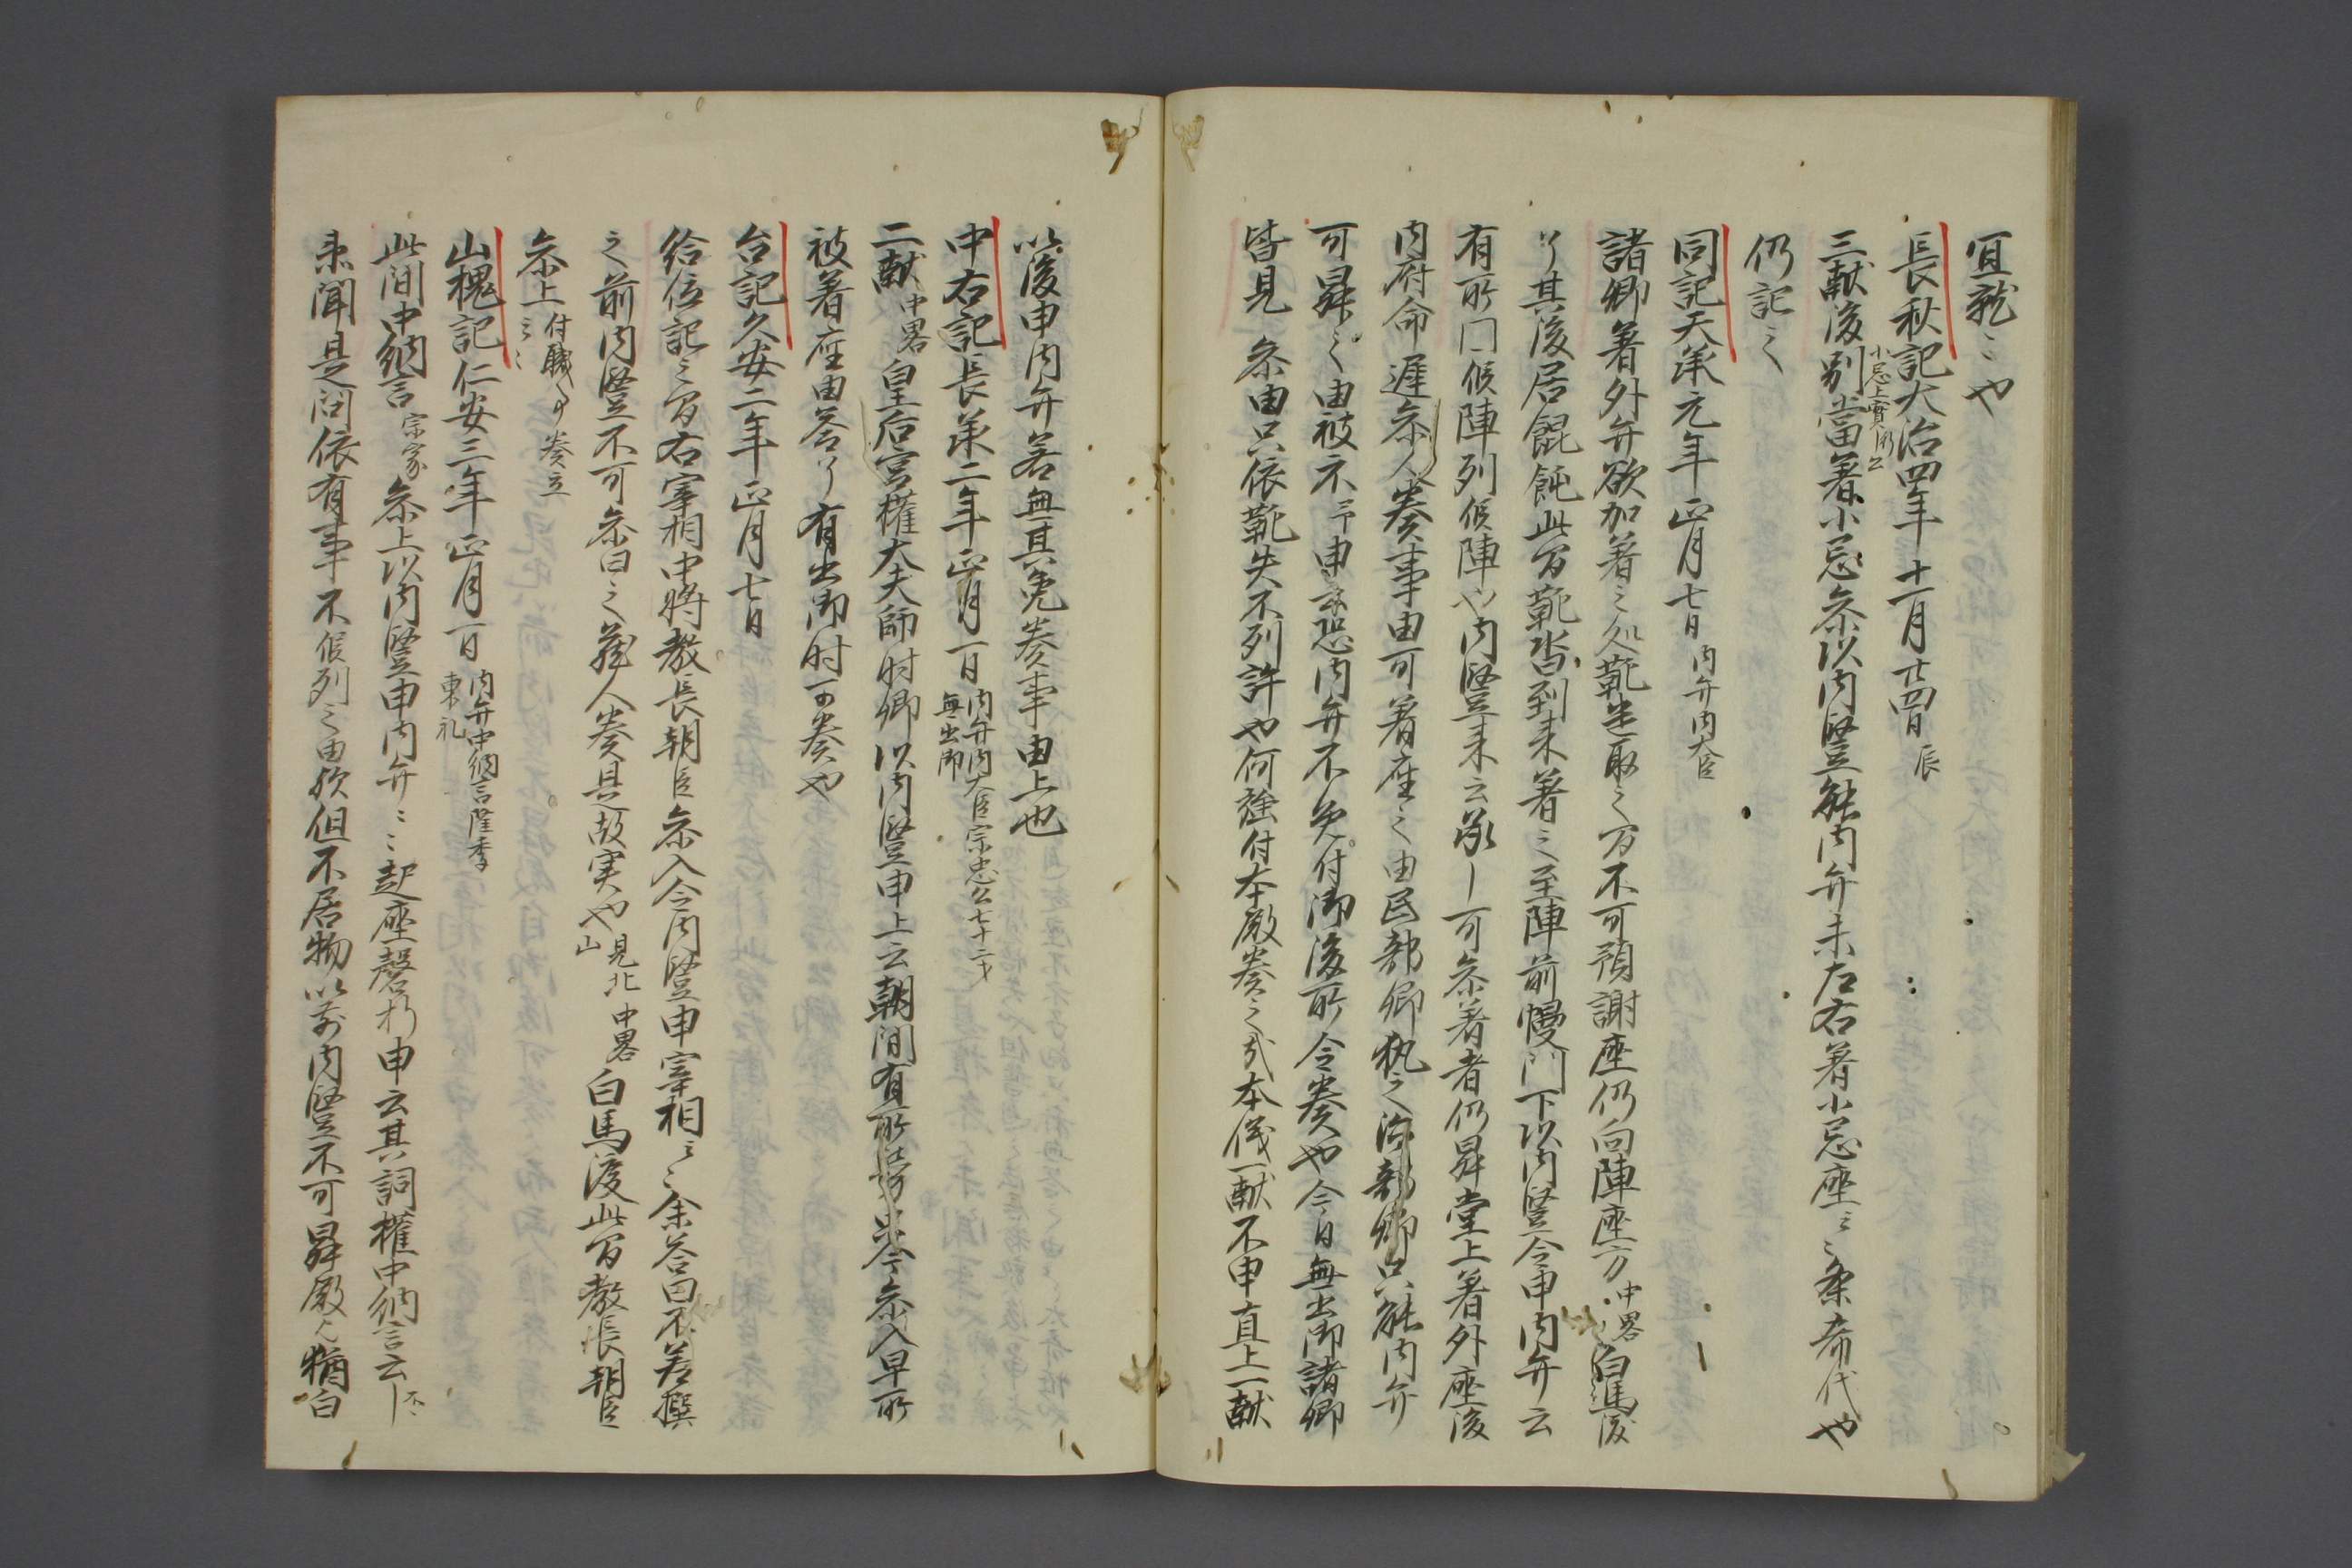 宜歟云々也
長秋記大治四年十一月廿四日辰
小忌上實衡公
三献後別當著小忌参以内竪触内弁未左右著小忌座云々条希代也
仍記之
同記天承元年正月七日内弁内大臣
諸卿著外弁欲加著之処靴遣取之間不可預謝座仍向陣座方中畧白馬後
了其後居餛飩此間靴沓到来著之至陣前幔門下以内竪令申内弁云
有所門候陣列候陣也内竪来云承可参著者仍昇堂上著外座後
内府命遅参人奏事由可著座之由民部卿執之治部卿只触内弁
可昇之由被示予申云恐内弁不免付御後所令奏也今日無出御諸卿
皆見参由只依靴失不列許也何強付本殿奏之哉本儀一献不申直上二献
以後申内弁若無其免奏事由上也
中右記長承二年正月一日内弁内大臣宗忠公七十二才
無出御
二献中畧皇后宮權大夫師時卿以内竪申上云朝間有所労只今参入早所
被著座由答了有出御時可奏也
台記久安二年正月七日
給位記之間右宰相中將教長朝臣参入令内竪申宰相云々余答曰不若撰
之前内竪不可参曰之蔵人奏是故実也見北山中畧白馬渡此間教長朝臣
参上云々付職事奏立
山槐記仁安三年正月一日内弁中納言隆季
東礼
此間中納言宗家参上以内竪申内弁云々起座磬折申云其詞權中納言云
未聞是问依有事不候列之由歟但不居物以前内竪不可昇殿之猶白